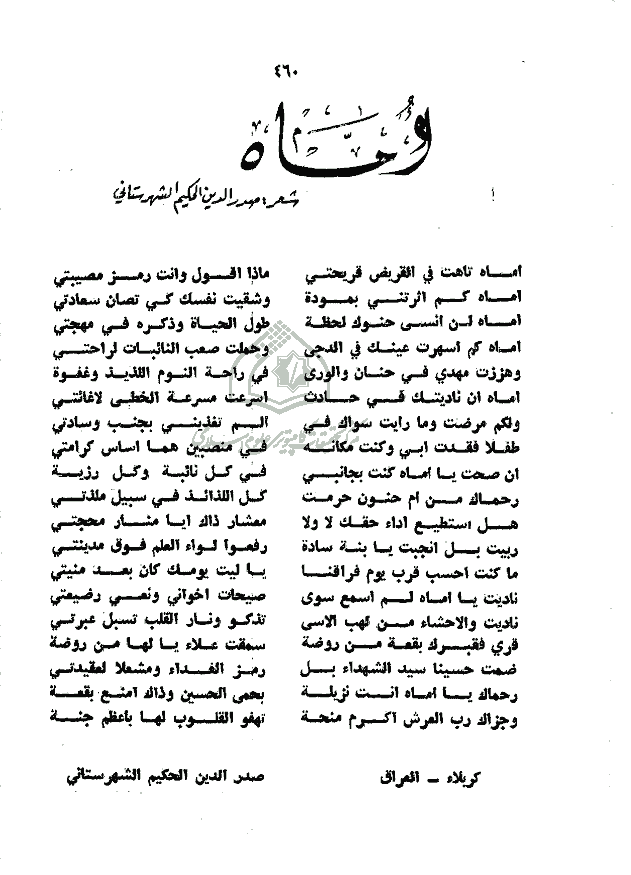 ٤٦٠
وا أماه
شعر: صدر الدين الحكيم الشهرستاني
اماه تاهت في القريض قريحتي ماذا اقول وانت رمز مصيبتي
اماه كم اثرتني بمودة وشقيت نفسك كي تصان سعادتي
اماه لن انسى حنوك لحظة طول الحياة وذكره في مهجتي
اماه كم اسهرت عينك في الدجى وحملت صعب النائبات لراحتي
وهززت مهدي في حنان والورى في راحة النوم اللذيذ وغفوة
اماه ان ناديتك في حادث اسرعت مسرعة الخطى لاغاثتي
ولكم مرضت وما رايت سواك في الم تفذيني بجنب وسادتي
طفلا فقدت ابي وكنت مكانه في منصبين هما اساس كرامتي
ان صحت يا اماه كنت بجانبي في كل نائبة وكل رزية
رحماك من ام حنون حرمت كل اللذائذ في سبيل ملذتي
هل استطيع اداء حقك لا ولا معشار ذاك ايا منار محجتي
ربيت بل انجبت يا بنة سادة رفعوا لواء العلم فوق مدينتي
ما كنت احسب قرب يوم فراقنا يا ليت يومك كان بعد منيتي
ناديت يا اماه لم اسمع سوى صيحات اخواني ونعي رضيعتي
ناديت والاحشاء من لهب الاسى تذكو ونار القلب تسبل عبرتي
قري فقبرك بقعة من روضة سمقت علاء يا لها من روضة
ضمت حسينا سيد الشهداء بل رمز الفداء ومشعلا لعقيدتي
رحماك يا اماه انت نزيلة بحمى الحسين وذاك امنع بقعة
وجزاك رب العرش اكرم منحة تهفو القلوب لها بأعظم جنة
كربلاء - العراق صدر الدين الحكيم الشهرستاني